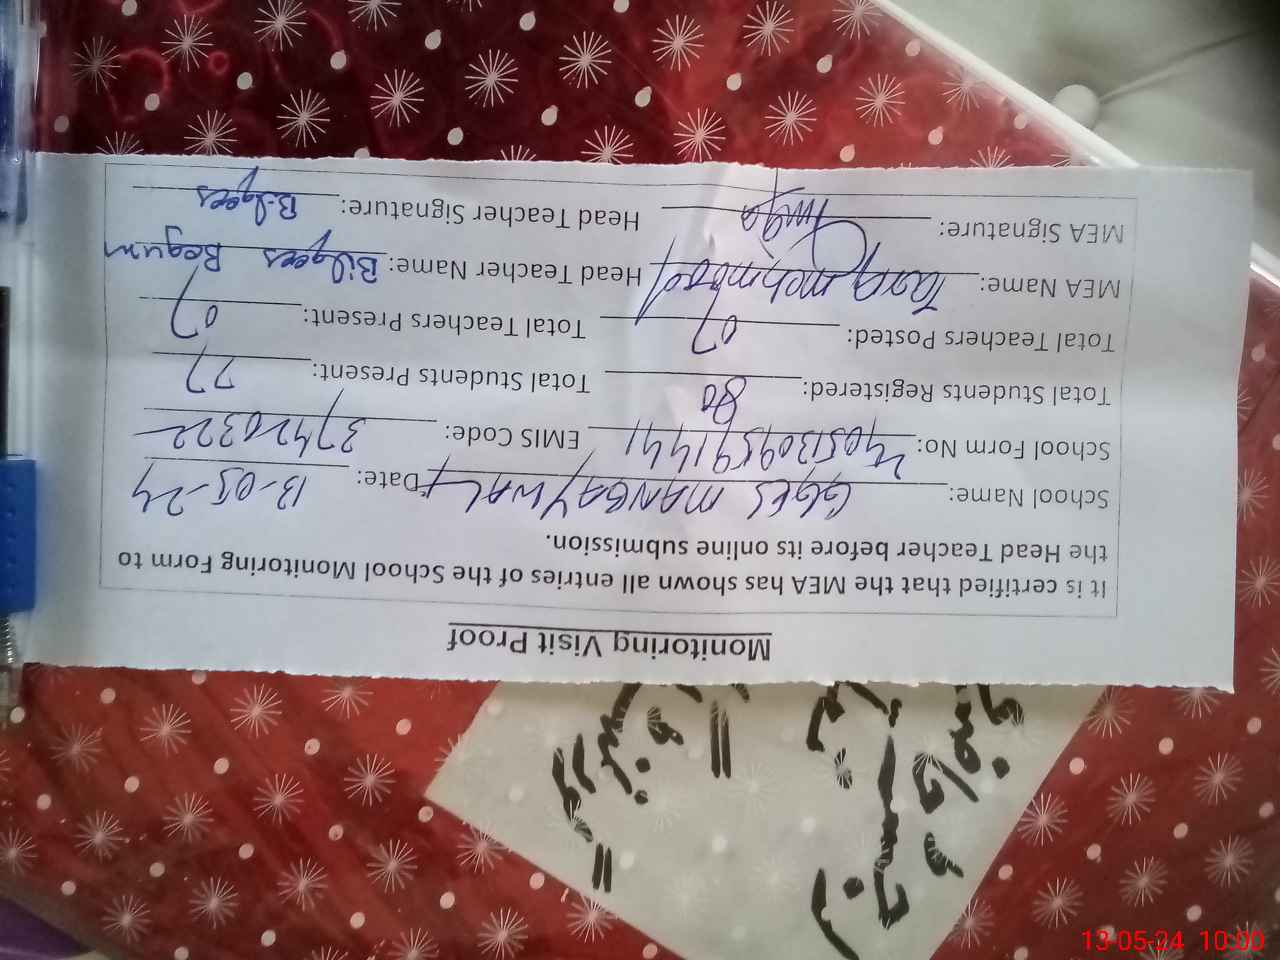 Monitoring Visit Proof
It is certified that the MEA has shown all entries of the School Monitoring Form to
the Head Teacher before its online submission.
School Name: GGES MANGAYWALA Date: 13-05-24
School Form No: EMIS Code: 37420322
Total Students Registered: 80 Total Students Present: 77
Total Teachers Posted: 07 Total Teachers Present: 07
MEA Name: Tariq mehmood Head Teacher Name: Bilqees Begum
MEA Signature: Head Teacher Signature: Bilqees
13-05-24 10:00